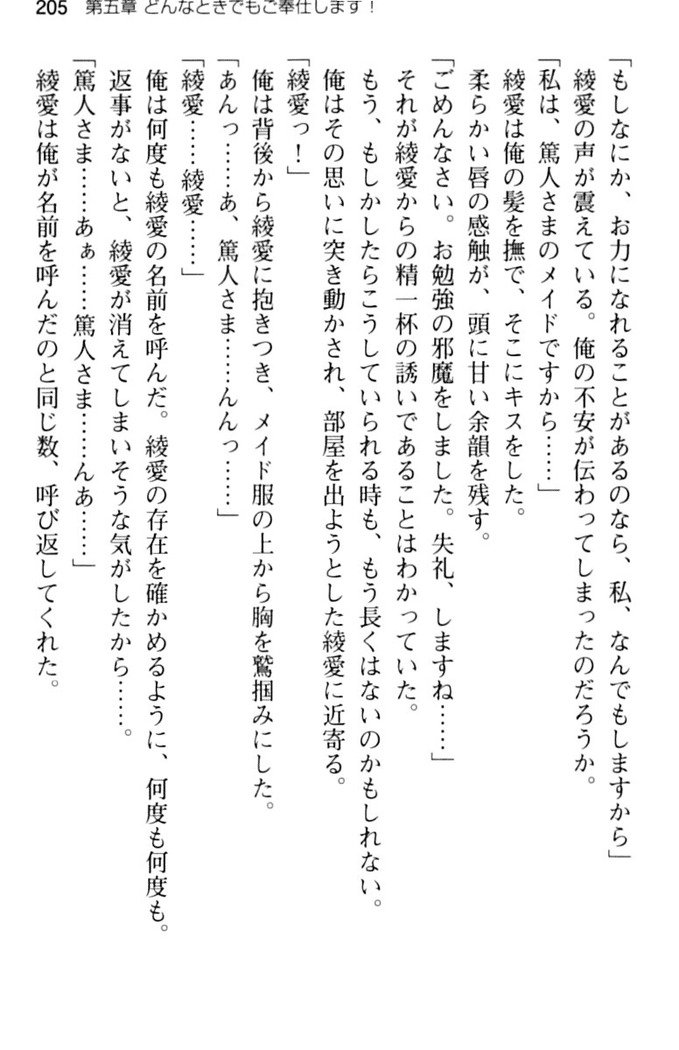 205 第五章 どんなときでもご奉仕します！
「もしなにか、お力になれることがあるのなら、私、なんでもしますから」
綾愛の声が震えている。俺の不安が伝わってしまったのだろうか。
「私は、篤人さまのメイドですから……」
綾愛は俺の髪を撫で、そこにキスをした。
柔らかい唇の感触が、頭に甘い余韻を残す。
「ごめんなさい。お勉強の邪魔をしました。失礼、しますね……」
それが綾愛からの精一杯の誘いであることはわかっていた。
もう、もしかしたらこうしていられる時も、もう長くはないのかもしれない。
俺はその思いに突き動かされ、部屋を出ようとした綾愛に近寄る。
「綾愛っ！」
俺は背後から綾愛に抱きつき、メイド服の上から胸を鷲掴みにした。
「あんっ……あ、篤人さま……んんっ……」
「綾愛……綾愛……」
俺は何度も綾愛の名前を呼んだ。綾愛の存在を確かめるように、何度も何度も。
返事がないと、綾愛が消えてしまいそうな気がしたから……。
「篤人さま……あぁ……篤人さま……んあ……」
綾愛は俺が名前を呼んだのと同じ数、呼び返してくれた。